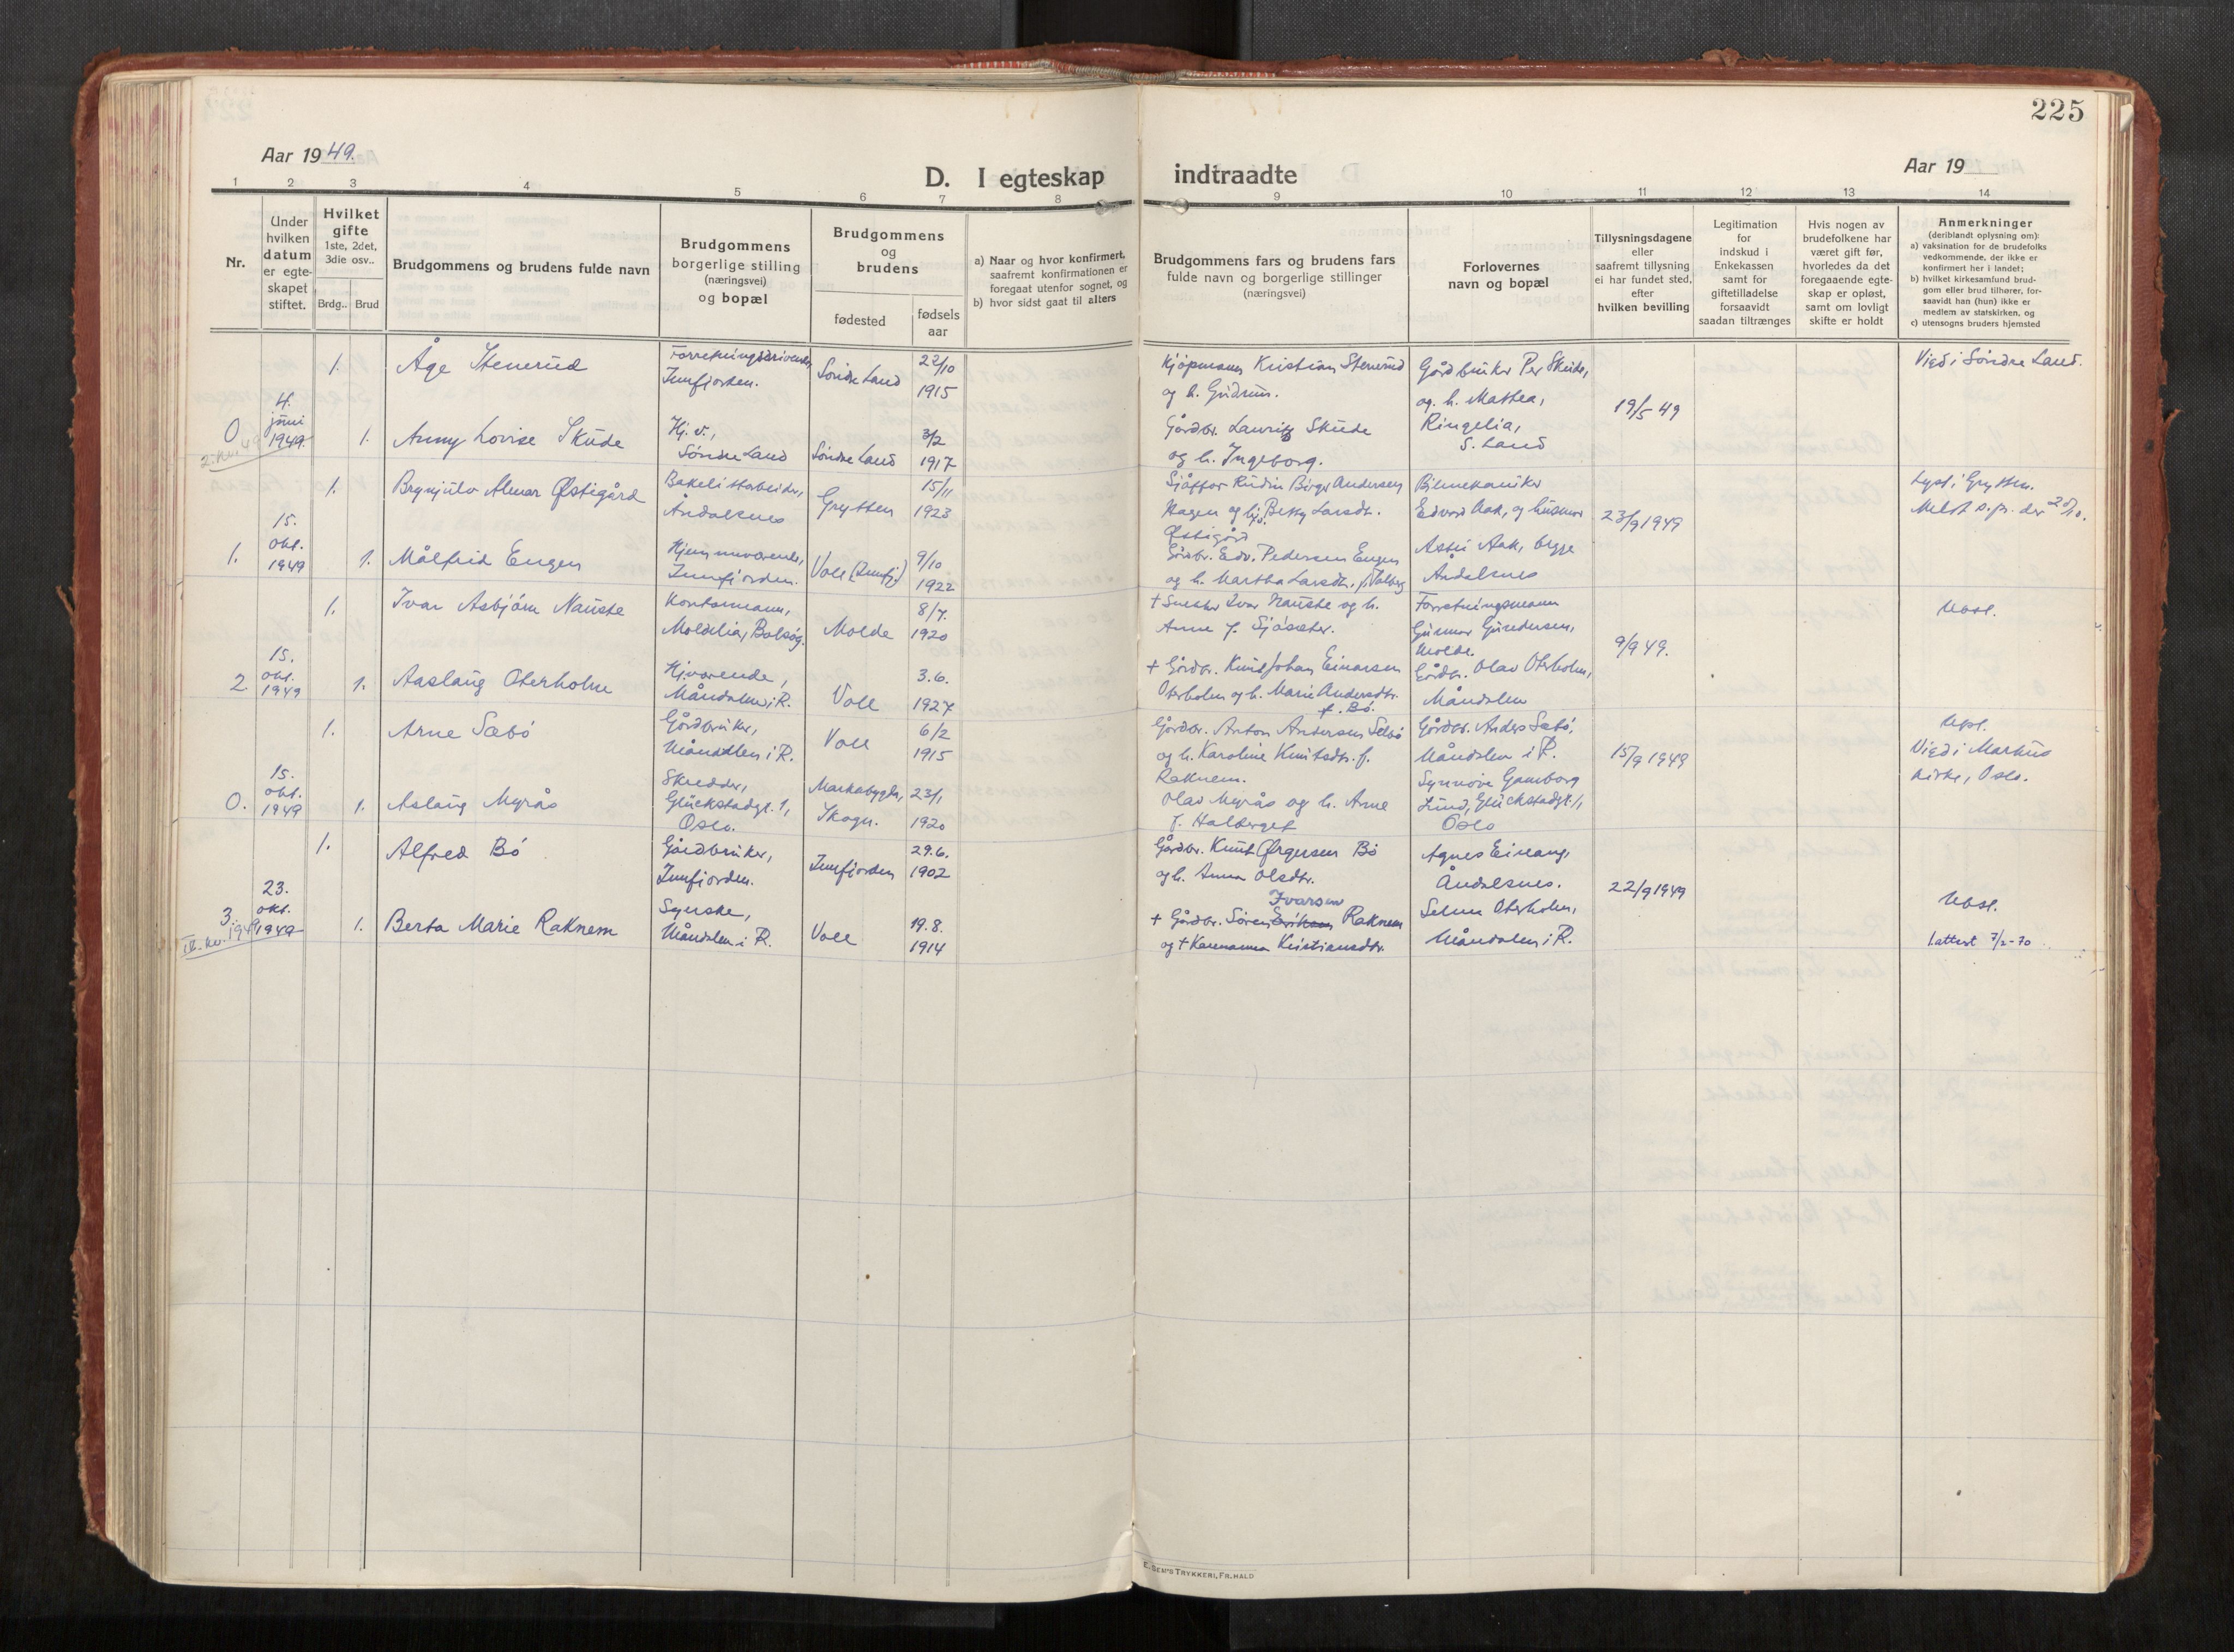 225
Aar 1949.
D. I egteskap indtraadte
Aar 19
1 2 3 4 5 6 7 8 9 10 11 12 13 14
Nr.
Under hvilken datum er egteskapet stiftet.
Hvilket gifte
1ste, 2det, 3die osv..
Brdg.. Brud
Brudgommens og brudens fulde navn
Brudgommens borgerlige stilling
(næringsvei)
og bopæl
Brudgommens og brudens
fødested
fødsels aar
a) Naar og hvor konfirmert, saafremt konfirmationen er foregaat utenfor sognet, og
b) hvor sidst gaat til alters
Brudgommens fars og brudens fars
fulde navn og borgerlige stillinger
(næringsvei)
Forlovernes
navn og bopæl
Tillysningsdagene
eller
saafremt tillysning
ei har fundet sted,
efter
hvilken bevilling
Legitimation
for
indskud i
Enkekassen
samt for
giftetilladelse
forsaavidt
saadan tiltrænges
Hvis nogen av
brudefolkene har
været gift før,
hvorledes da det
foregaaende egte-
skap er opløst,
samt om lovligt
skifte er holdt
Anmerkninger
(deriblandt oplysning om):
a) vaksination for de brudefolks
vedkommende, der ikke er
konfirmert her i landet;
b) hvilket kirkesamfund brud-
gom eller brud tilhører, for-
saavidt han (hun) ikke er
medlem av statskirken, og
c) utensogns bruders hjemsted
0
4. juni 1949.
1.
Åge Stenerud
Forretningsdrivende, Innfjorden.
Søndre Land
22/10 1915
Kjøpmann Kristian Stenerud
og h. Gudrun.
Gårdbruker Per Skute,
og h. Mathea,
Ringelia,
S. Land
19/5 49
Vied i Søndre Land.
1.
Anny Lovise Skude
Hj. v.,
Søndre Land
Søndre Land
3/2 1917
Gårdbr. Lauritz Skude
og h. Ingeborg.
1.
15. okt. 1949
1.
Brynjulv Almar Østigård
Bakelittarbeider,
Åndalsnes
Grytten
15/11 1923
Sjåffør Rudin Birger Andersen
Hagen og hj. Betzy Larsdt.
Østigård
Bilmekaniker
Edvard Aak, og husmor
Astri Aak, begge
Åndalsnes
23/9 1949
Lyst i Grytten.
Meldt s.pr. der 20/10.
1.
Målfrid Engen
Hjemmeværende,
Innfjorden.
Voll (Innfj.)
9/10 1922
Gårdbr. Edv. Pedersen Engen
og h. Martha Larsdt. f. Valberg
2.
15. okt. 1949
1.
Ivar Asbjørn Nauste
Kontormann,
Moldelia, Bolsøy.
Molde
8/7. 1920
+ Snekker Ivar Nauste og h.
Anne f. Sjøsæter.
Forretningsmann
Gunnar Gundersen,
Molde.
Gårdbr. Olav Oterholm,
Måndalen
9/9 49.
Ubsl.
1.
Aaslaug Oterholm
Hj.værende,
Måndalen i R.
Voll
3.6. 1927
+ Gårdbr. Knut Johan Einarsen
Oterholm og h. Marie Andersdtr.
f. Bø.
0.
15. okt. 1949
1.
Arne Sæbø
Gårdbruker,
Måndalen i R.
Voll
6/2 1915
Gårdbr. Anton Andersen Sæbø
og h. Karoline Knutsdtr. f.
Raknem.
Gårdbr. Anders Sæbø,
Måndalen i R.
Synnøve Gamborg
Lund, Glückstadgt. 1,
Oslo
15/9 1949
Ubsl.
Vied i Markus
kirke, Oslo.
1.
Aslaug Myrås
Skredder,
Glückstadgt. 1,
Oslo.
Markabygden,
Skogn.
23/1 1920
Olav Myrås og h. Arne
f. Halberget
3.
23. okt. 1949
1.
Alfred Bø
Gårdbruker,
Innfjorden.
Innfjorden
29.6. 1902
Gårdbr. Knut Ørgersen Bø
og h. Anna Olsdtr.
Agnes Einang,
Åndalsnes.
Selma Oterholm,
Måndalen i R.
22/9 1949
Ubsl.
1.attest 7/2-70
1.
Berta Marie Raknem
Syerske,
Måndalen i R.
Voll
19.8. 1914
Ivarsen
+ Gårdbr. Søren Raknem
og + Karenanna Kristiansdtr.
SEM'S TRYKKERI, FR.HALD